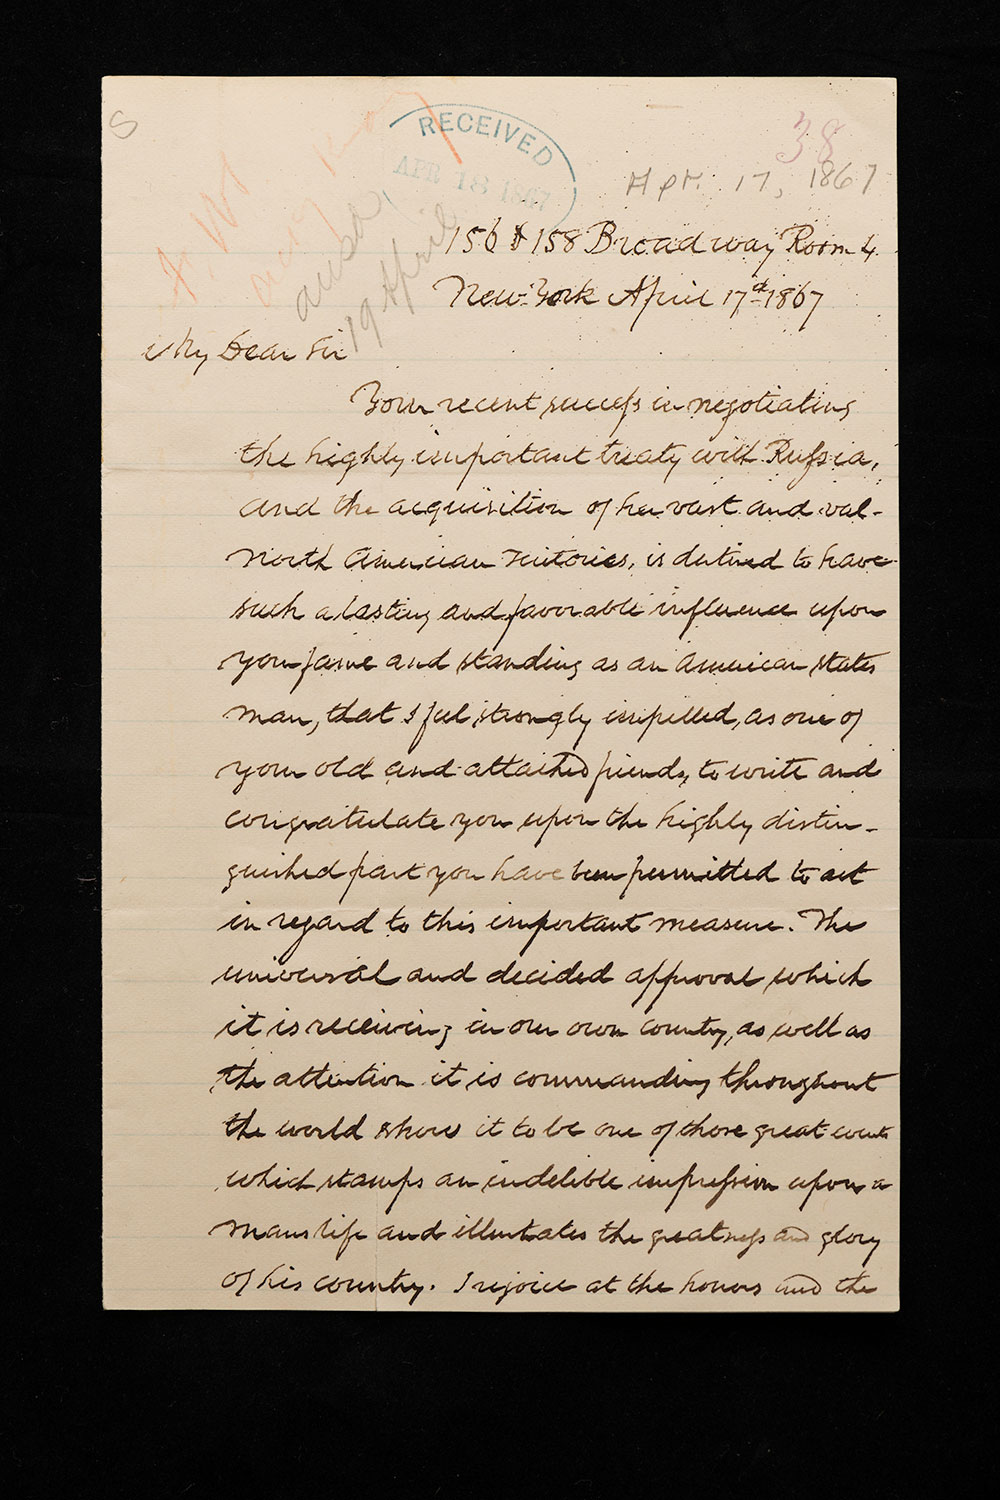 S
38
RECEIVED
APR 18 1867
Apr. 17, 1867
ansd,
19 April
156 & 158 Broadway Room 4.
New York April 17th 1867
My Dear Sir
Your recent success in negotiating
the highly important treaty with Russia,
and the acquisition of her vast and val-
North American Territories, is destined to have
such a lasting and favorable influence upon
your fame and standing as an American states
man, that I feel strongly impelled, as one of
your old and attached friends, to write and
congratulate you upon the highly distin-
guished part you have been permitted to act
in regard to this important measure. The
universal and decided approval which
it is receiving in our own country, as well as
the attention it is commanding throughout
the world shows it to be one of those great events
which stamps an indelible impression upon a
mans life and illustrates the greatness and glory
of his country. I rejoice at the honors and the